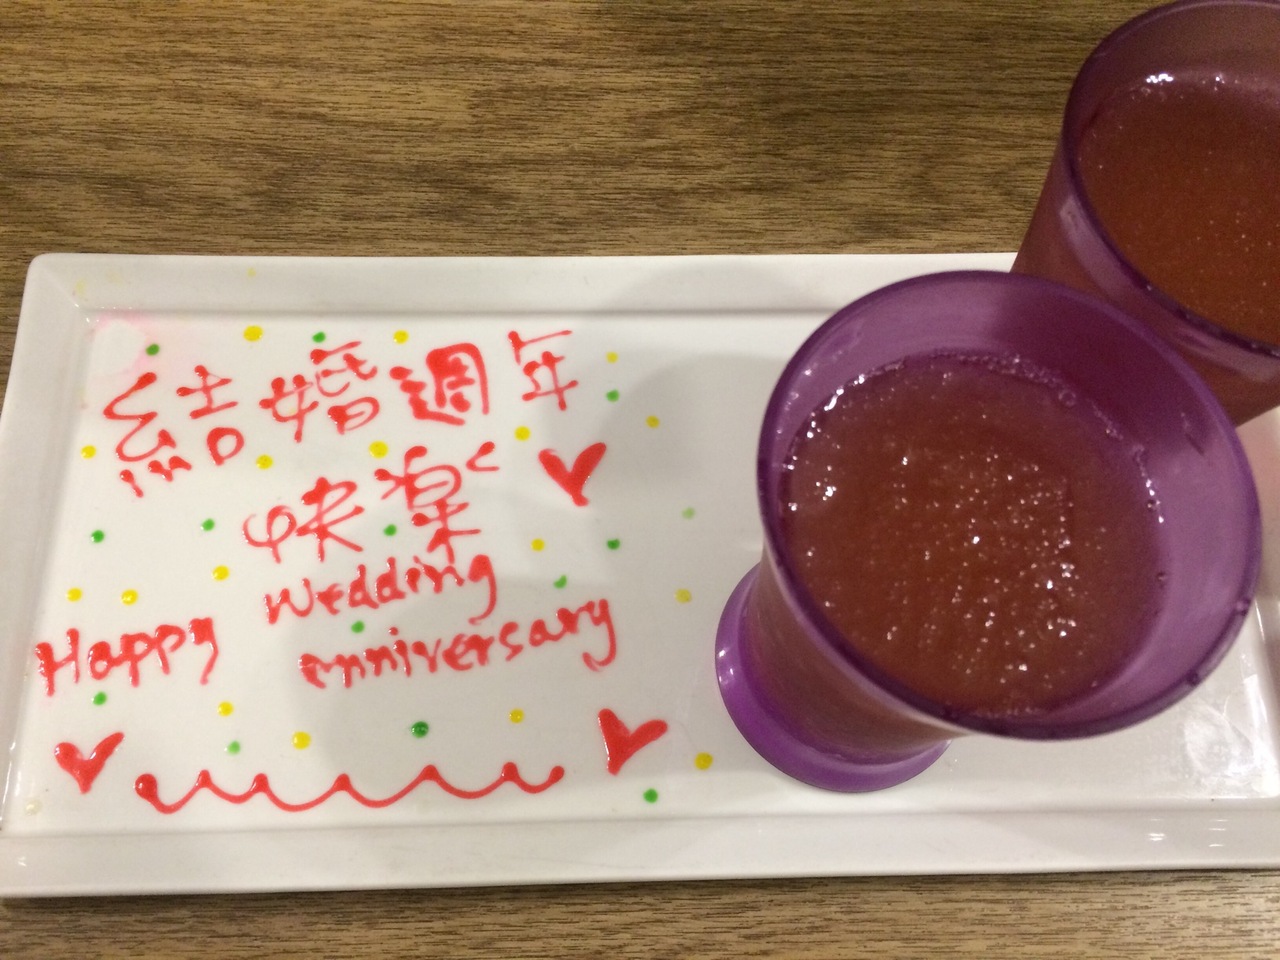 結婚週年
快樂
Happy Wedding
anniversary